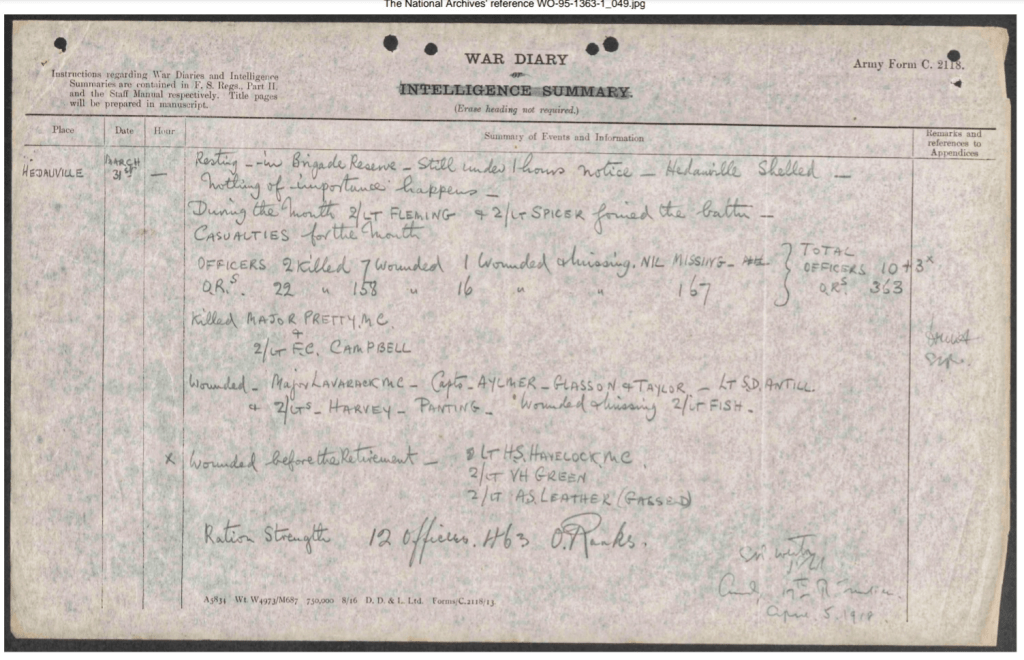 The National Archives' reference WO-95-1363-1_049.jpg
WAR DIARY
or
INTELLIGENCE SUMMARY.
(Erase heading not required.)
Army Form C. 2118.
Instructions regarding War Diaries and Intelligence
Summaries are contained in F. S. Regs., Part II.
and the Staff Manual respectively. Title pages
will be prepared in manuscript.
Place Date Hour Summary of Events and Information Remarks and references to Appendices
HEDAUVILLE MARCH 31st — Resting – in Brigade Reserve – Still under 1 hours notice – Hedauville Shelled –
Nothing of importance happens –
During the Month 2/LT FLEMING & 2/LT SPICER joined the battn –
CASUALTIES for the Month
OFFICERS 2 Killed 7 Wounded 1 Wounded & missing. NIL MISSING – } TOTAL OFFICERS 10 + 3x
O.R.s. 22 " 158 " 16 " " 167 } O.R.s 363
Killed MAJOR PRETTY, MC.
+
2/LT F.C. CAMPBELL
Wounded – Major LAVARACK MC – Capts – AYLMER – GLASSON & TAYLOR – LT S.D. ANTILL.
& 2/LTs – HARVEY – PANTING – Wounded & missing 2/LT FISH –
x Wounded before the Retirement – LT H.S. HAVELOCK, MC.
2/LT VH GREEN
2/LT A.S. LEATHER (GASSED)
Ration Strength 12 Officers. 463 O. Ranks.
April 5. 1918
A5834 Wt. W4973/M687 750,000 8/16 D. D. & L. Ltd. Forms/C.2118/13